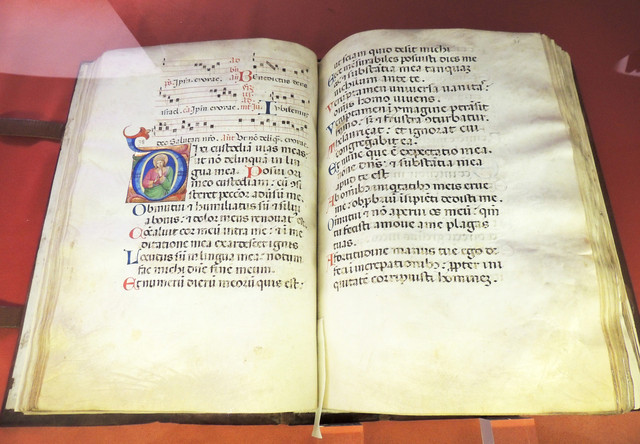 Benedictus
ps. evovae.
isrl. ps. evovae.
deo salutari nr̄o. Añ. Ut nō delīq̄. evovae.
ixi custodiā vias meas
ut nō delinquā in lin
gua mea. Posui ori
meo custodiam: cū cō
sisteret peccōr adūsū me.
Obmutui & humiliatus sū & silui
a bonis: & dolor meus renovat' est.
Concaluit cor meum intra me: & in me
ditatione mea exardescet ignis
Locutus sū in lingua mea: notum
fac michi dnē finē meum.
Et numerū dierū meorū quis est:
ut sciam quid desit michi
Ecce mēsurabiles posuisti dies me
os & substātia mea tanquam
nichilum ante te.
Verumtamen universa vanitas:
omnis homo vivens.
Verumtamen in ymagine ptrāsit
homo: s; & frustra ɔturbatur.
Thesaurizat: & ignorat cui
congregabit ea.
Et nunc que ē expectatio mea
nōe dn̄s: & substātia mea
apud te est
Ab omnib; iniqtatib; meis erue
me: obprobriū īsipiēti dedisti me.
Obmutui & nō aperui os meū: qm̄
tu fecisti amove a me plagas
tuas.
A fortitudine manus tue ego de
feci ī increpationib; ppter ini
quitatē corripuisti hominem.